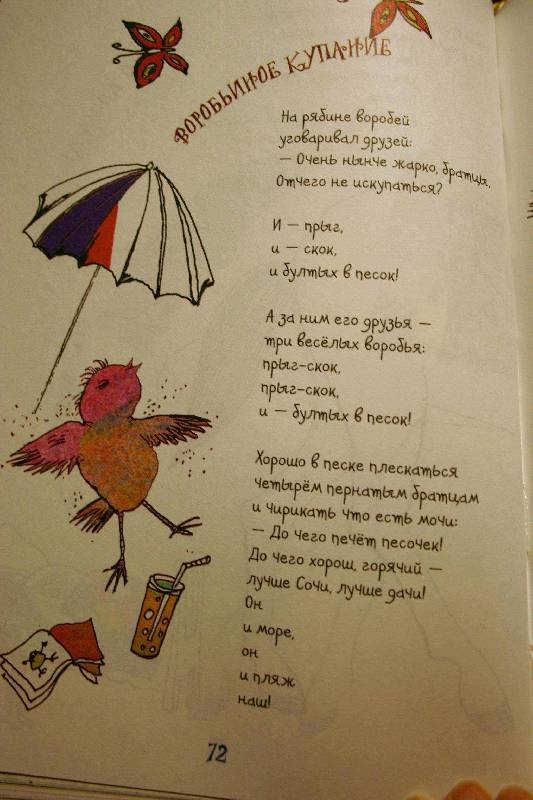 ВОРОБЬИНОЕ КУПАНИЕ
На рябине воробей
уговаривал друзей:
— Очень нынче жарко, братцы,
Отчего не искупаться?
И — прыг,
и — скок,
и бултых в песок!
А за ним его друзья —
три весёлых воробья:
прыг-скок,
прыг-скок,
и — бултых в песок!
Хорошо в песке плескаться
четырём пернатым братцам
и чирикать что есть мочи:
— До чего печёт песочек!
До чего хорош, горячий —
лучше Сочи, лучше дачи!
Он
и море,
он
и пляж
наш!
72